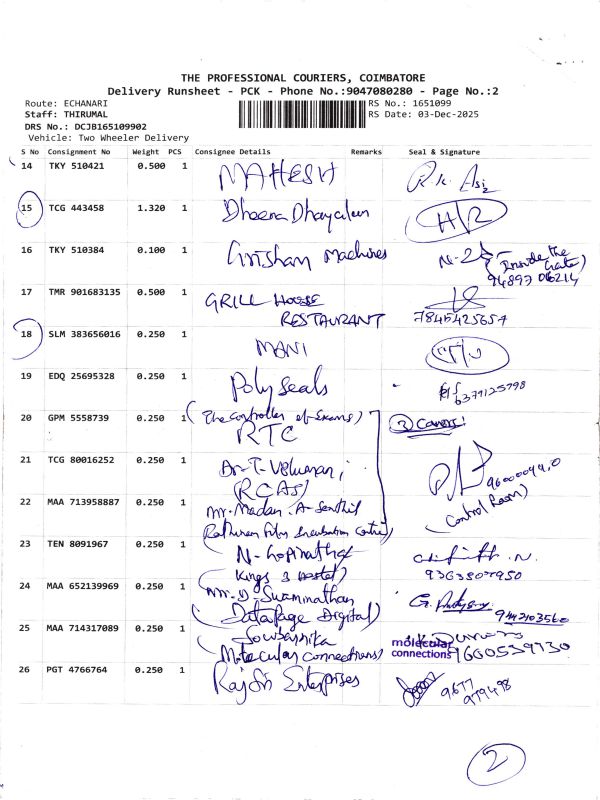 THE PROFESSIONAL COURIERS, COIMBATORE
Delivery Runsheet - PCK - Phone No.:9047080280 - Page No.:2
Route: ECHANARI
Staff: THIRUMAL
DRS No.: DCJB165109902
Vehicle: Two Wheeler Delivery
RS No.: 1651099
RS Date: 03-Dec-2025
S No Consignment No Weight PCS Consignee Details Remarks Seal & Signature
14 TKY 510421 0.500 1 MAHESH
15 TCG 443458 1.320 1 Dheena Dhayalan H/R
16 TKY 510384 0.100 1 Grisham Machines
(Inside the Gate)
94897 06214
17 TMR 901683135 0.500 1 GRILL HOUSE
RESTAURANT 7845425657
18 SLM 383656016 0.250 1 MANI
19 EDQ 25695328 0.250 1 Poly Seals
6379125798
20 GPM 5558739 0.250 1 (The Controller of Exams)
RTC
21 TCG 80016252 0.250 1 Dr. T.
(RCAS)
(Control Room)
22 MAA 713958887 0.250 1 Mr. Madan. A Senthil
Rathinam Film Incubation Centre)
23 TEN 8091967 0.250 1 N. Gopinath
(Kings 3 Hostel) 9363807950
24 MAA 652139969 0.250 1 Mr. D. Swaminathan
(Datapage Digital)
25 MAA 714317089 0.250 1 Sowbarnika
(Molecular Connections)
molecular
connections 9600539730
26 PGT 4766764 0.250 1 Raj Sri Enterprises
9677
979498
2